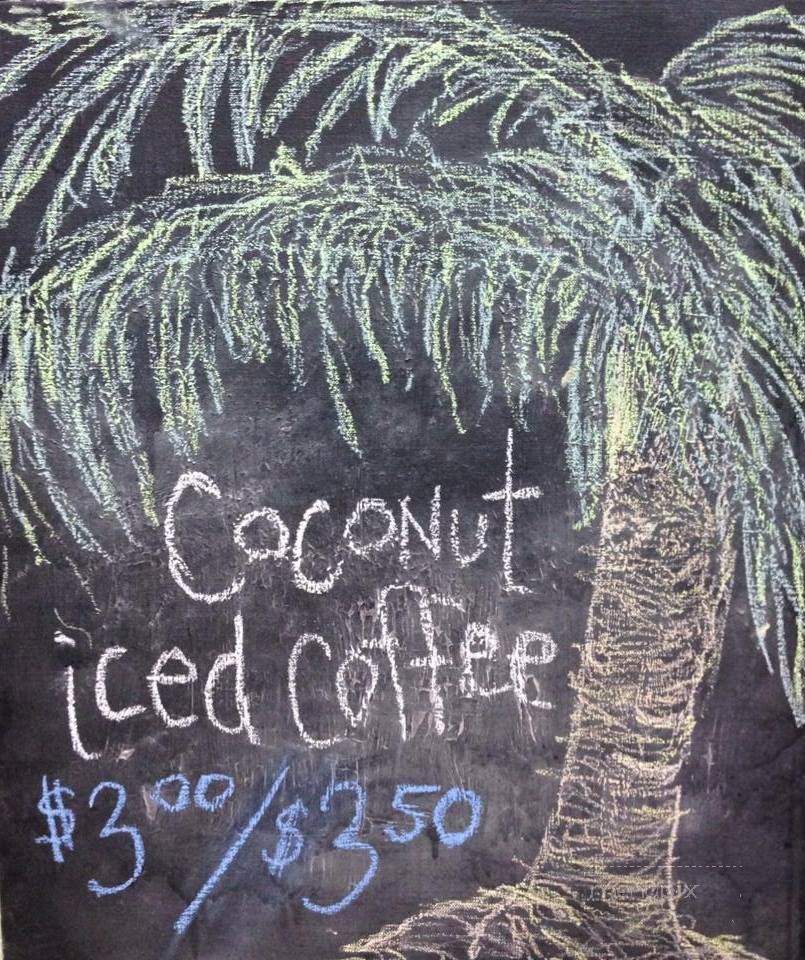 Coconut
iced coffee
$3.00/$3.50